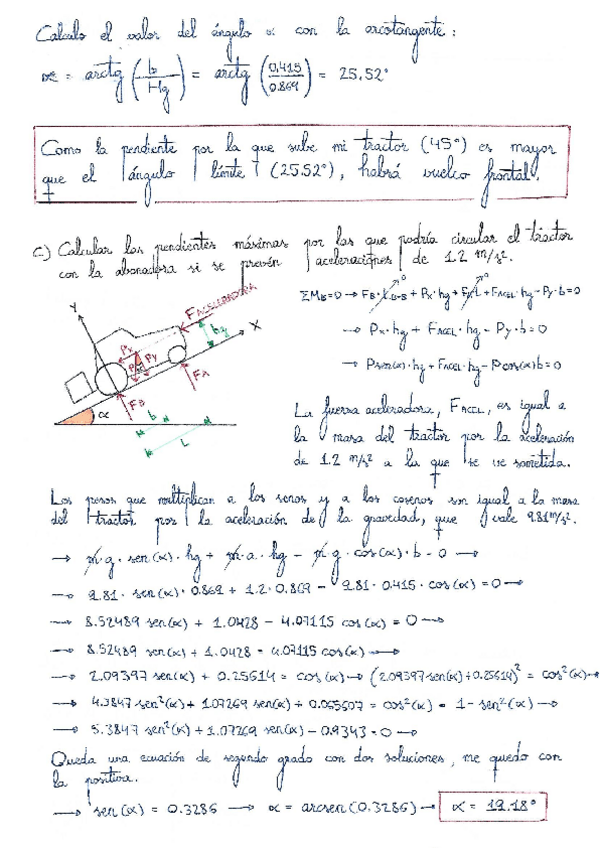 Calculo el valor del ángulo α con la arcotangente:
α = arctg (b/Hg) = arctg (0.415/0.869) = 25.52°
Como la pendiente por la que sube mi tractor (45°) es mayor
que el ángulo límite (25.52°), habrá vuelco frontal.
c) Calcular las pendientes máximas por las que podría circular el tractor
con la abonadora si se prevén aceleraciones de 1.2 m/s².
ΣM_B=0 → F_B·L_B-B + Px·hg + F_A·L + F_ACEL·hg - Py·b=0
0
0
→ Px·hg + F_ACEL·hg - Py·b=0
→ Psen(α)·hg + F_ACEL·hg - Pcos(α)b=0
Y
F ACELERADORA
hg
X
Px
Py
P
F_A
F_B
α
b
L
La fuerza aceleradora, F_ACEL, es igual a
la masa del tractor por la aceleración
de 1.2 m/s² a la que se ve sometida.
Los pesos que multiplican a los senos y a los cosenos son igual a la masa
del tractor por la aceleración de la gravedad, que vale 9.81m/s².
→ m·g·sen(α)·hg + m·a·hg - m·g·cos(α)·b = 0 →
→ 9.81·sen(α)·0.869 + 1.2·0.869 - 9.81·0.415·cos(α) = 0 →
→ 8.52489 sen(α) + 1.0428 - 4.07115 cos(α) = 0 →
→ 8.52489 sen(α) + 1.0428 = 4.07115 cos(α) →
→ 2.09397 sen(α) + 0.25614 = cos(α) → (2.09397 sen(α) + 0.25614)² = cos²(α) →
→ 4.3847 sen²(α) + 1.07269 sen(α) + 0.065607 = cos²(α) = 1 - sen²(α) →
→ 5.3847 sen²(α) + 1.07269 sen(α) - 0.9343 = 0 →
Queda una ecuación de segundo grado con dos soluciones, me quedo con
la positiva.
→ sen(α) = 0.3286 → α = arcsen(0.3286) → α = 19.18°